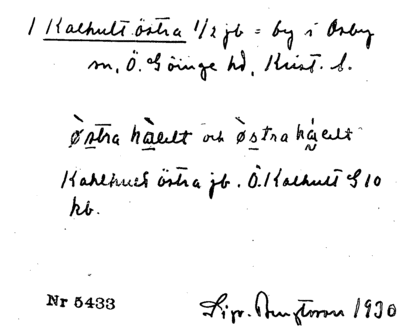 1 Kalhult östra 1/2 jb = by i Osby
sn, Ö. Göinge hd, Krist. l.
Østra och østra
östra jb. Ö. Kalhult G 10
kb.
Nr 5433 Sigv. Bengtsson 1930